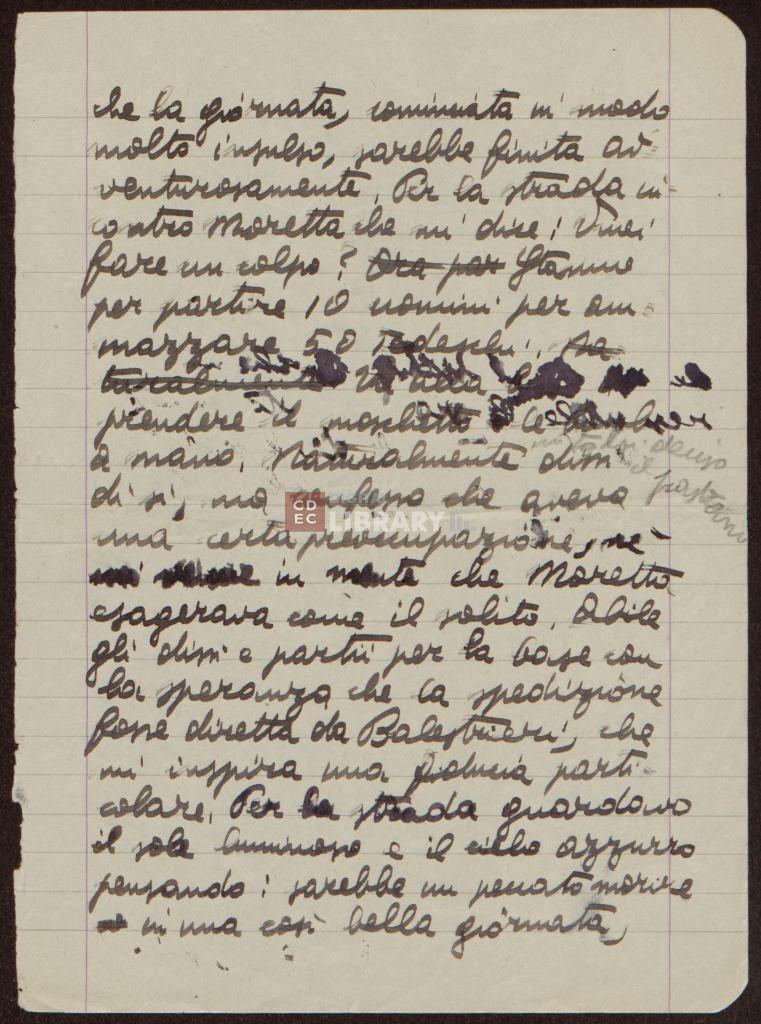 che la giornata, cominciata in modo
molto insulso, sarebbe finita av-
venturosamente. Per la strada in-
contro Moretta che mi dice: Vuoi
fare un colpo? Ora par Stanno
per partire 10 uomini per am-
mazzare 50 Tedeschi. Na
turalmente
prendere il moschetto e le bombe
a mano. Naturalmente dissi
di sì, ma confesso che avevo
una certa preoccupazione, né
mi venne in mente che Moretta
esagerava come il solito. Abile
gli dissi e partii per la base con
la speranza che la spedizione
fosse diretta da Balestrieri, che
mi inspira una fiducia parti-
colare. Per la strada guardavo
il sole luminoso e il cielo azzurro
pensando: sarebbe un peccato morire
in una così bella giornata,
CDEC LIBRARY